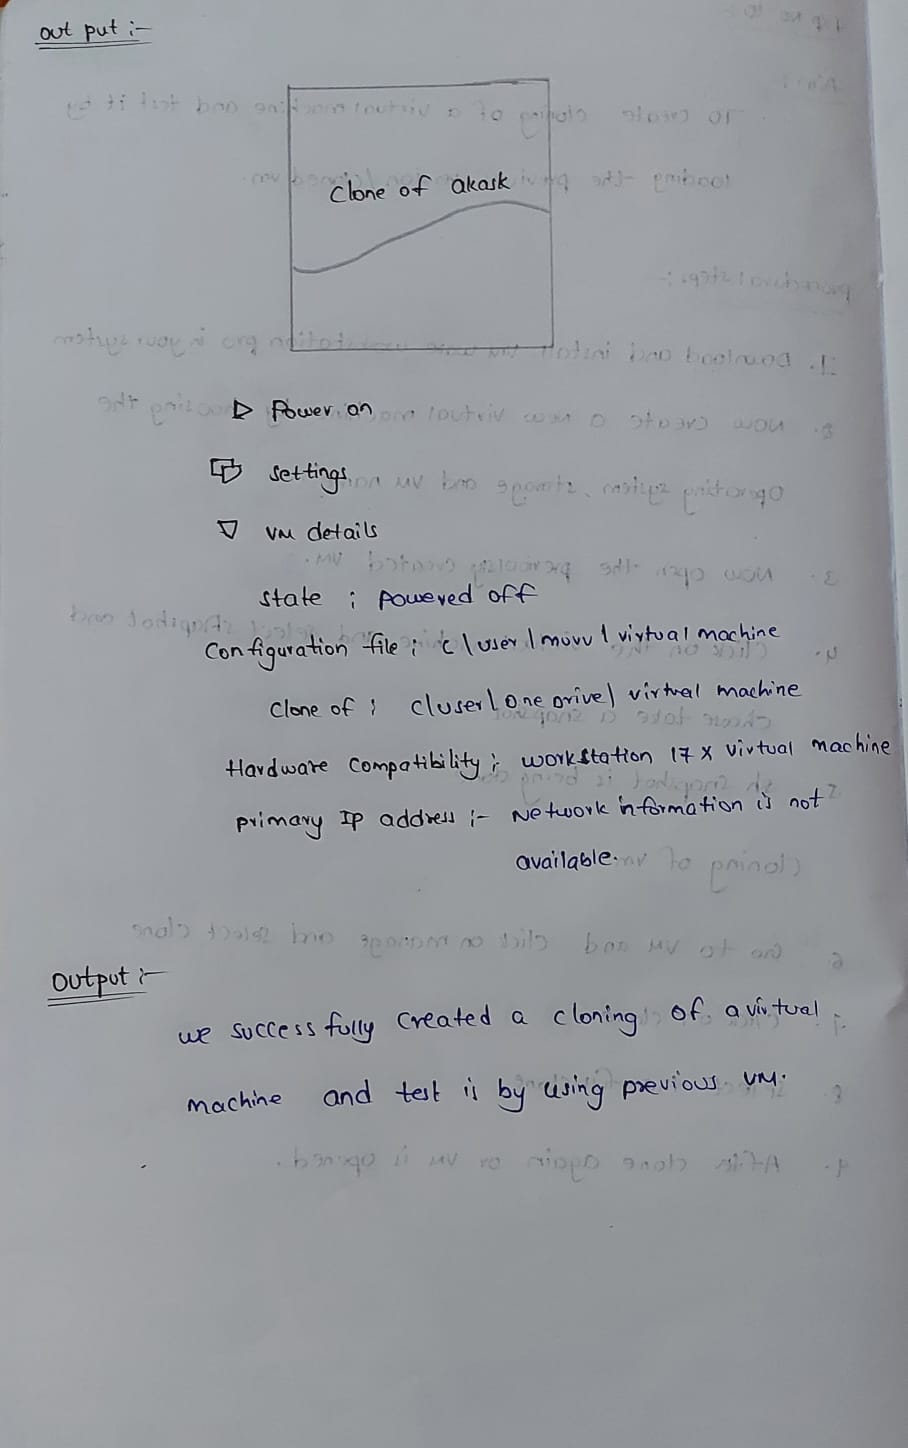 out put :-
Clone of akask
Power on
settings
VM details
state : powered off
Configuration file : C \ user \ \ virtual machine
Clone of : C\user\ One Drive\ virtual machine
Hardware compatibility : workstation 17 x virtual machine
primary IP address :- Network information is not
available.
Output :-
we successfully created a cloning of a virtual
machine and test is by using previous VM.